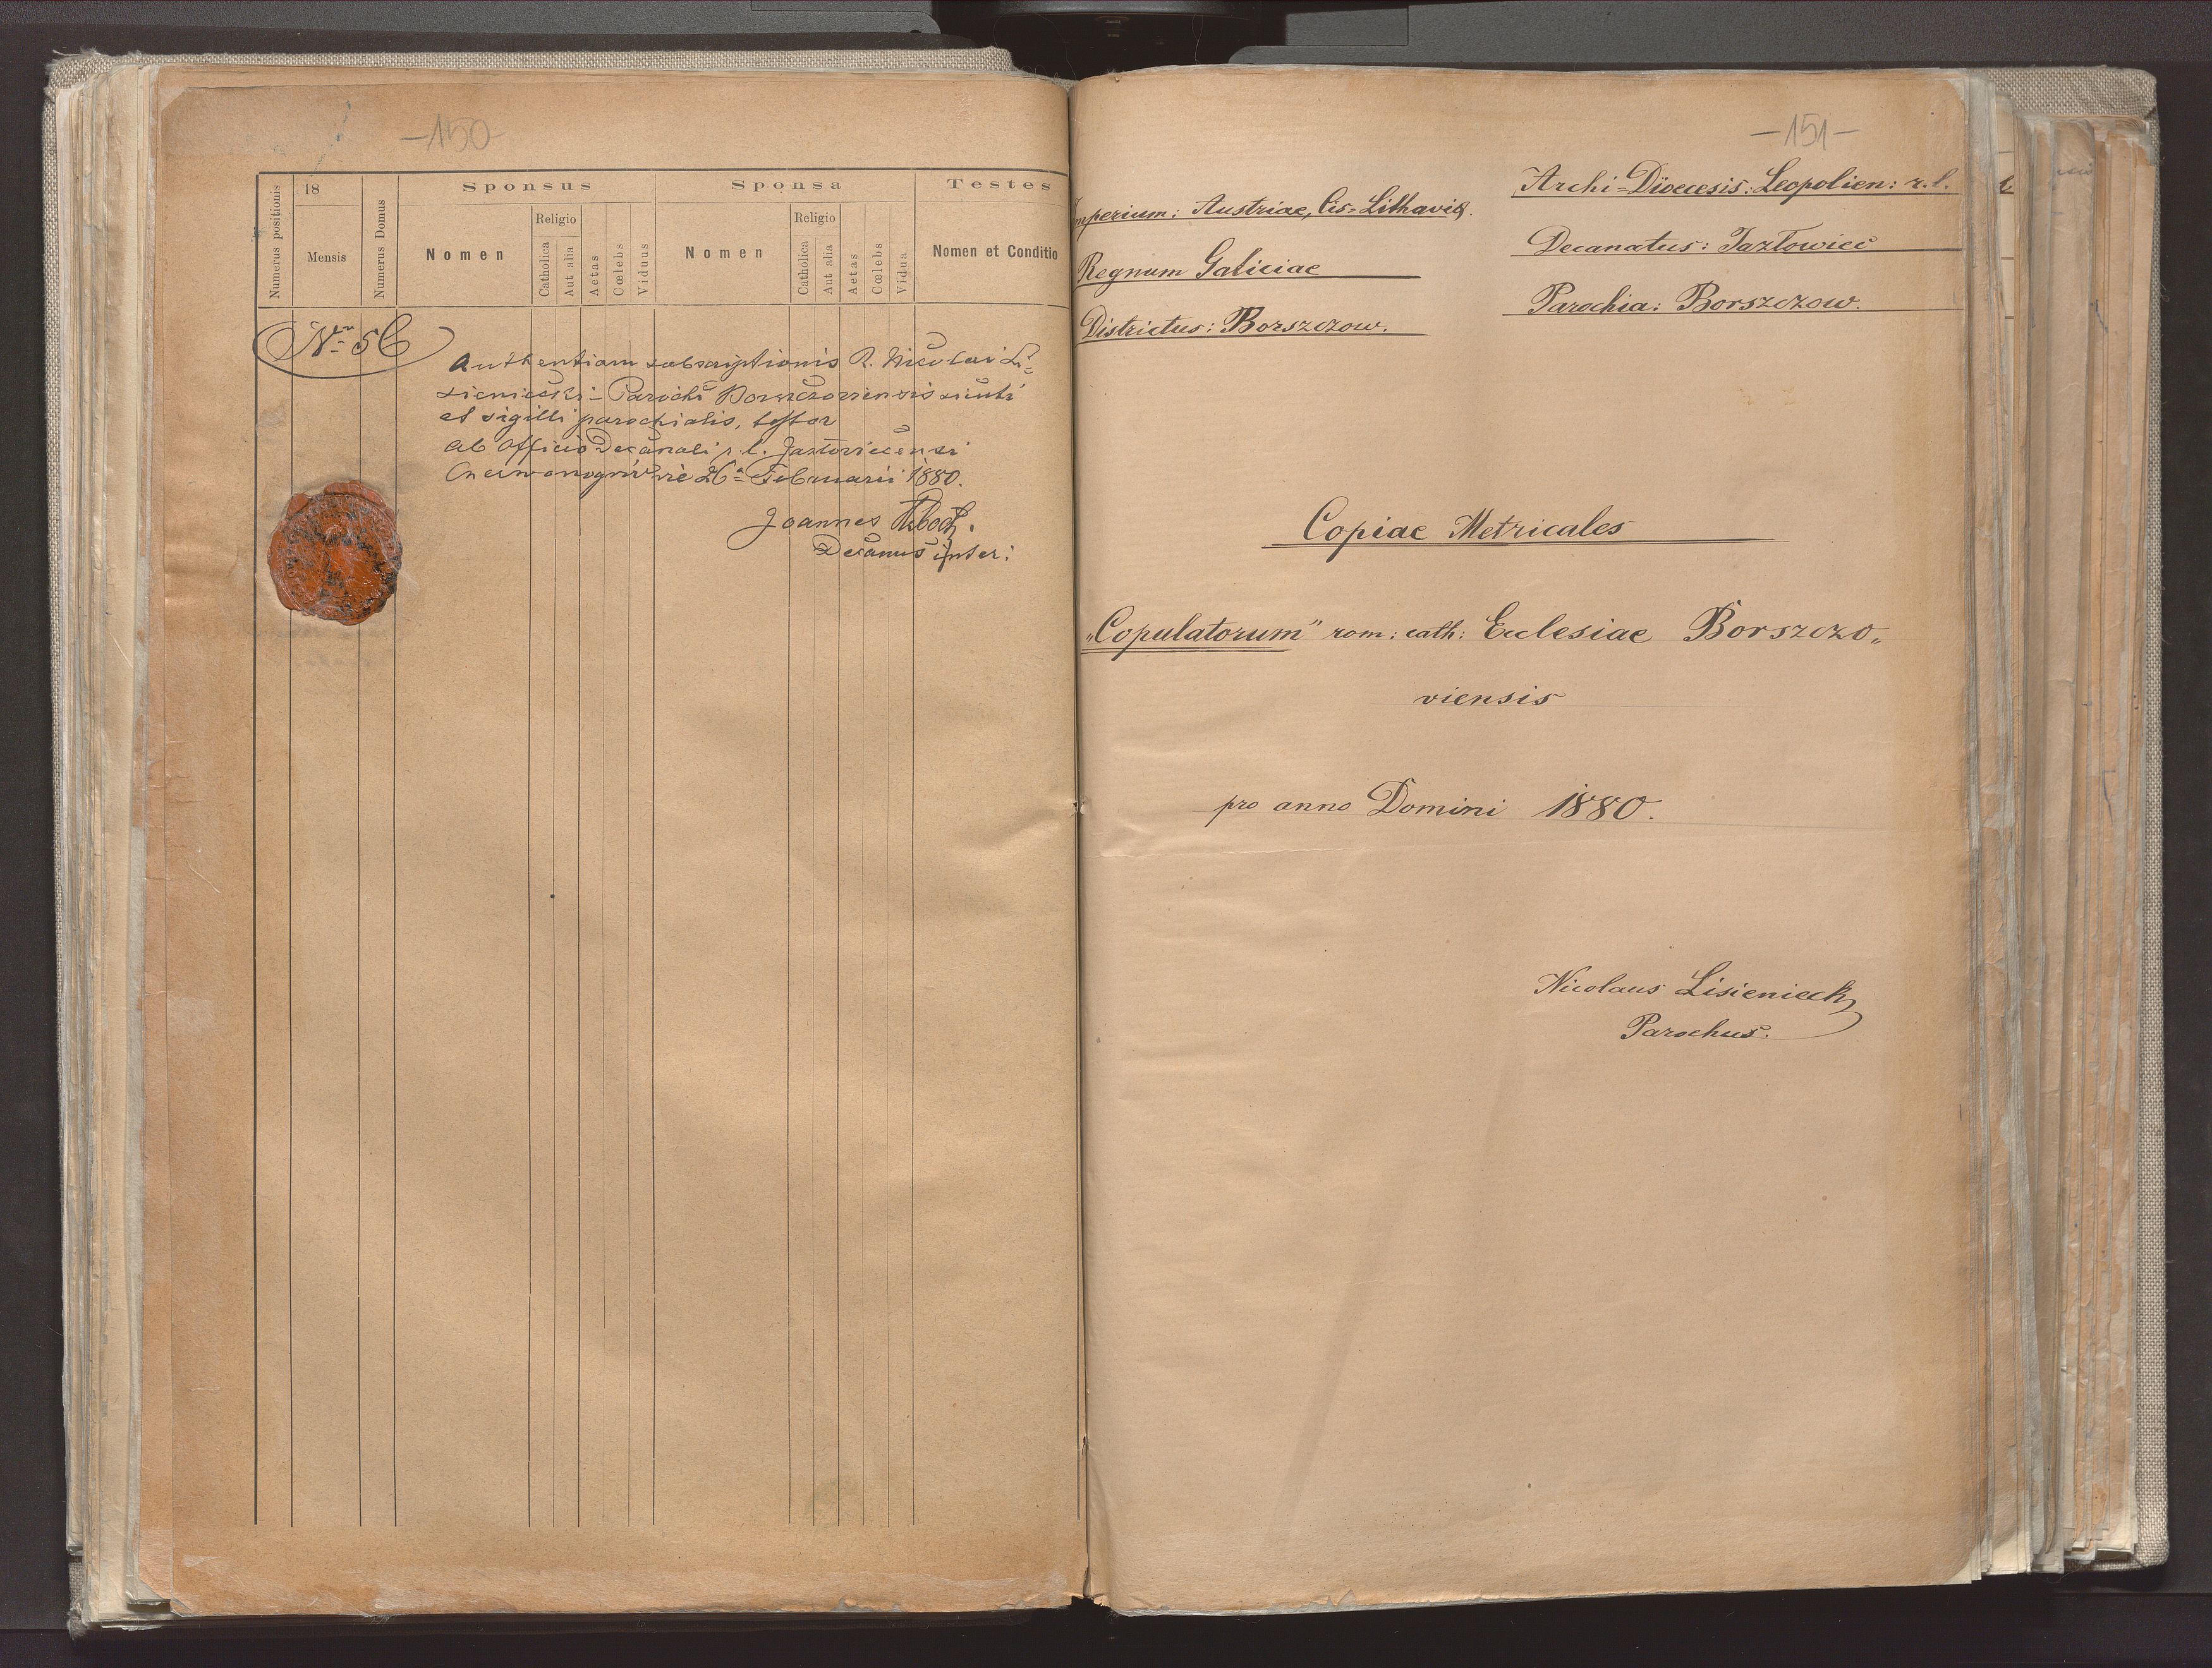 -150-
Numerus positionis
18
Mensis
Numerus Domus
Sponsus
Nomen
Religio
Catholica
Aut alia
Aetas
Cœlebs
Viduus
Sponsa
Nomen
Religio
Catholica
Aut alia
Aetas
Cœlebs
Vidua
Testes
Nomen et Conditio
Nr 56
Authentiam subscriptionis R. Nicolai Li=
sieniecki - Parochi Borszczoviensis sicuti
et sigilli parochialis, testor
Ab Officio Decanali r. l. Jazłoviecensi
26a Februarii 1880.
Joannes
Decanus
-151-
Imperium: Austriae, Cis=Lithaviae.
Regnum Galiciae
Districtus: Borszczow.
Archi=Dioecesis: Leopolien: r. l.
Decanatus: Jazłowiec
Parochia: Borszczow.
Copiae Metricales
„Copulatorum" rom: cath: Ecclesiae Borszczo„
viensis
pro anno Domini 1880.
Nicolaus Lisieniecki
Parochus.